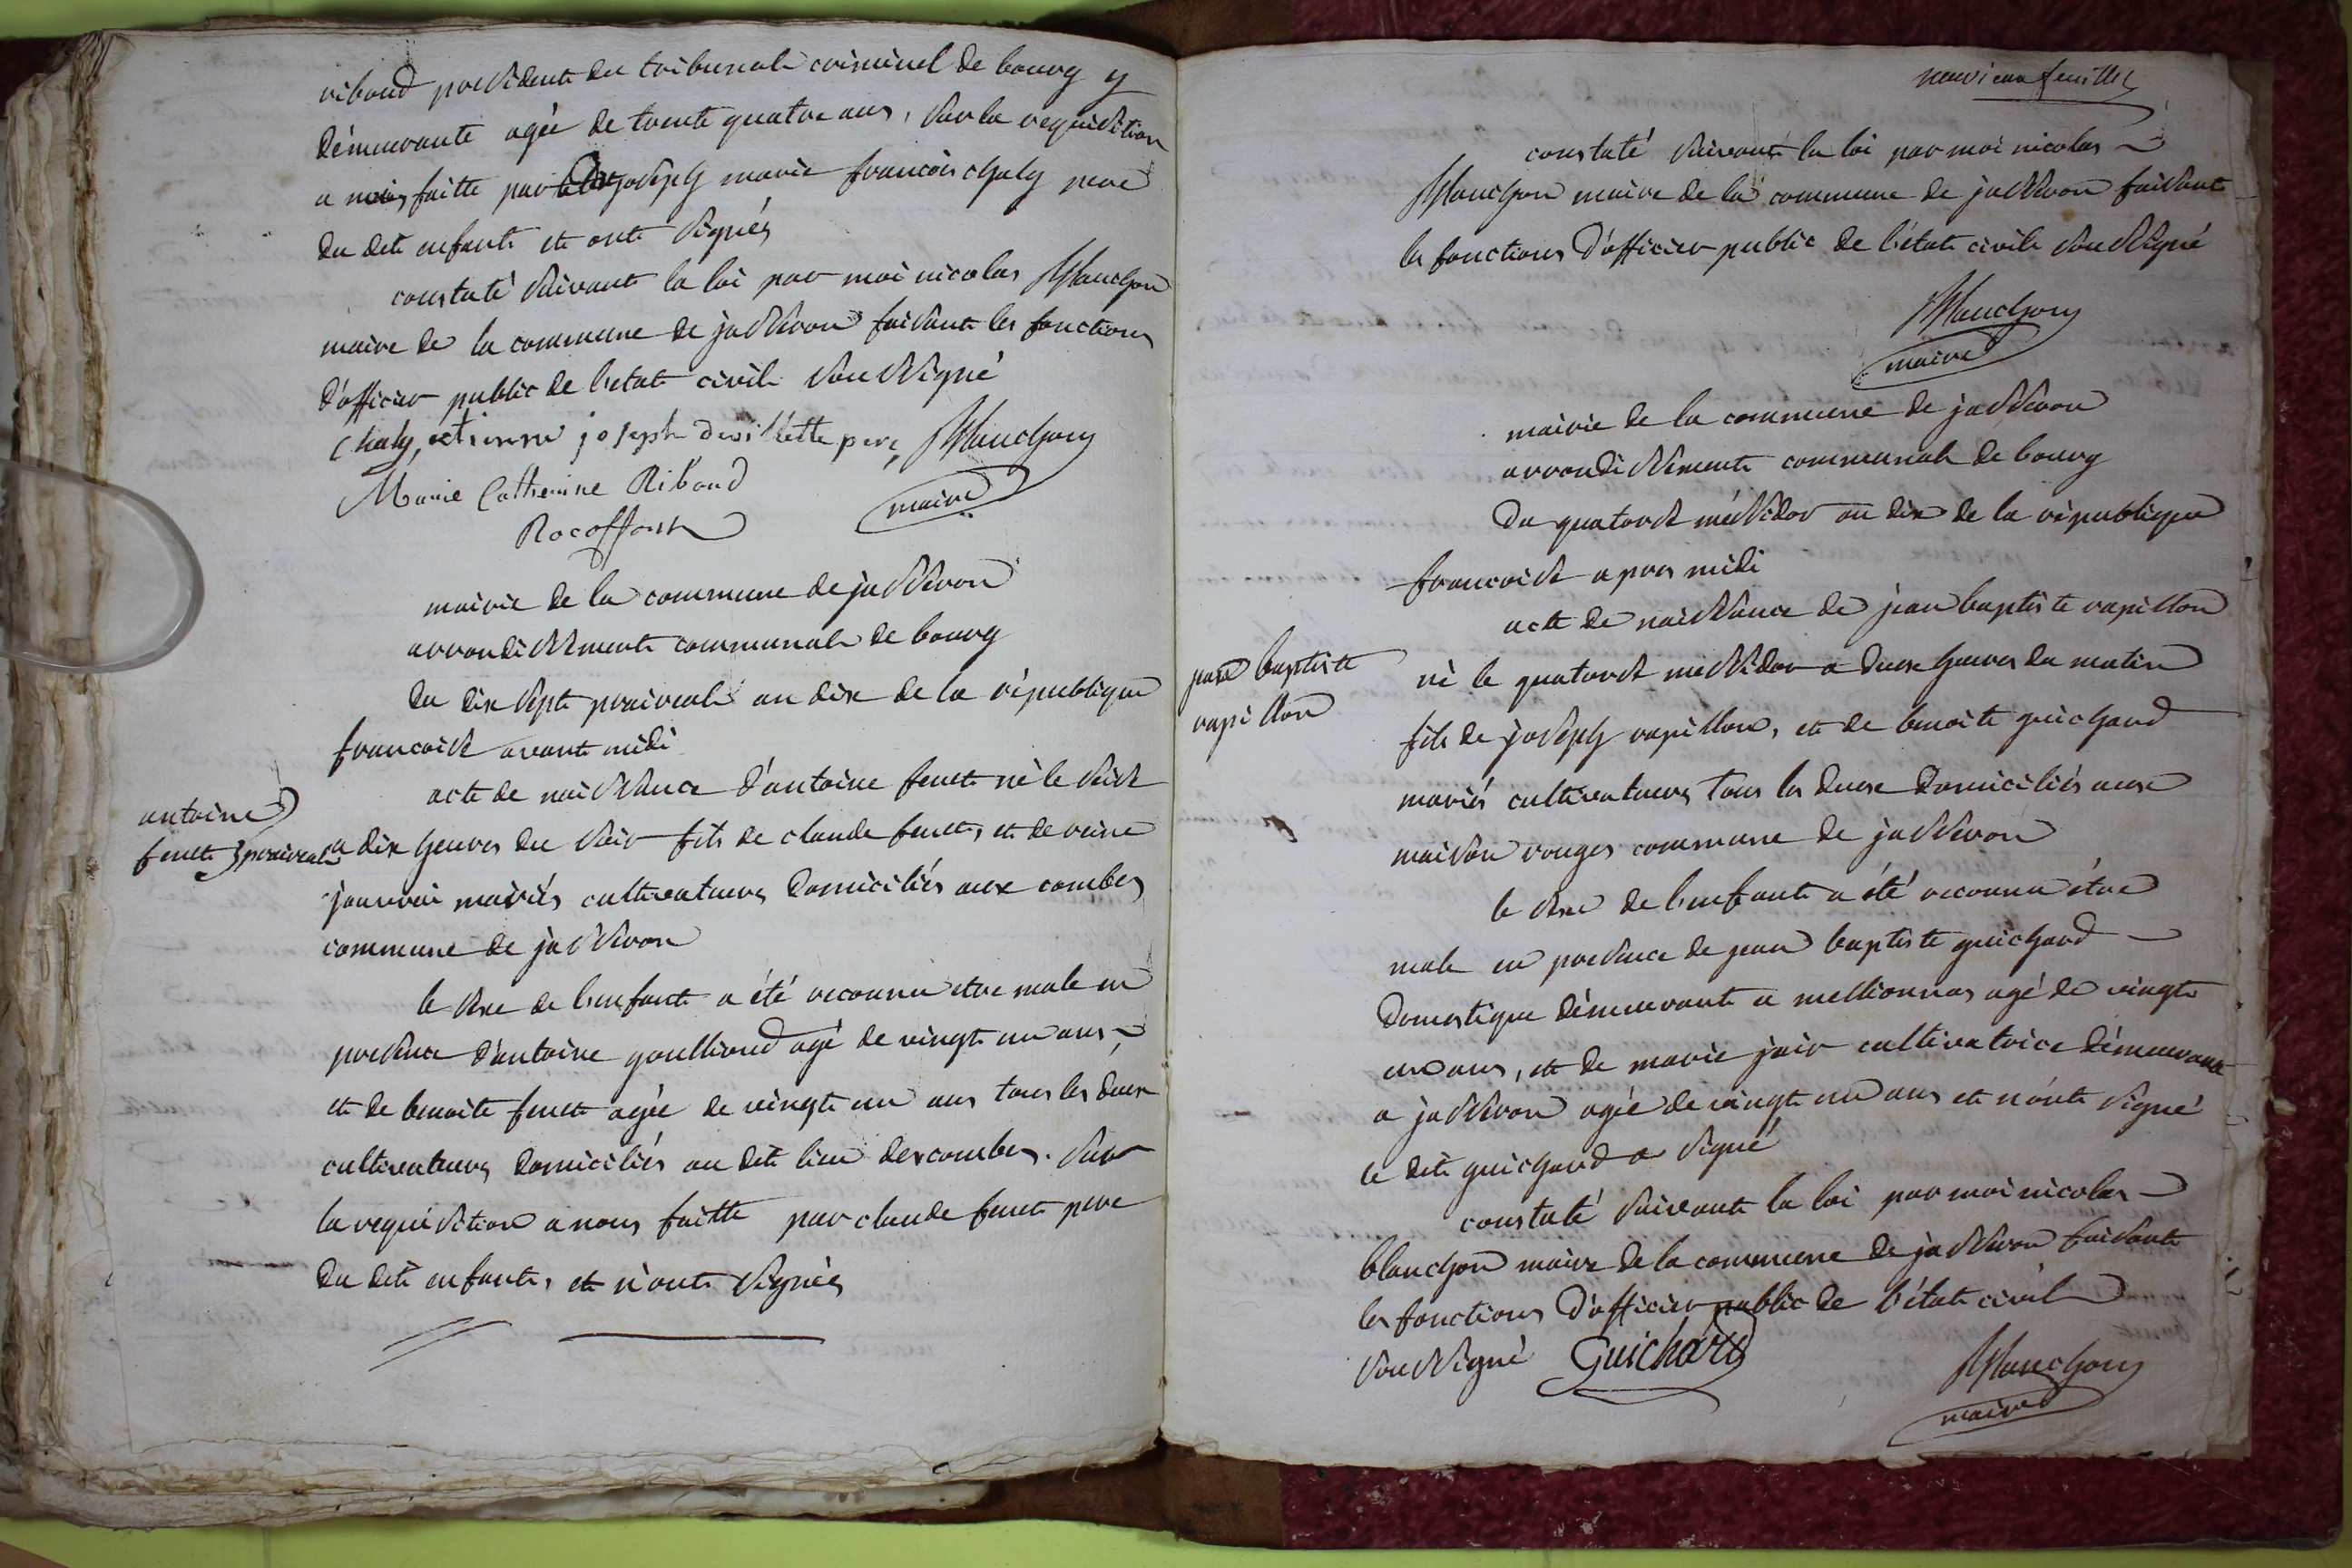 riboud president du tribunal criminel de bourg y
démeurante agée de trente quatre ans, sur la requisition
a nous faitte par joseph marie françois chaly pere
du dit enfant et ont signés
constaté suivant la loi par moi nicolas Blanchon
maire de la commune de jasseron faisant les fonctions
d'officier public de l'etat civil soussigné
Chaly, etienne joseph pere, Blanchon
Marie Catherine Riboud maire
Rocoffort
mairie de la commune de jasseron
arrondissement communal de bourg
du dix sept praireal an dix de la république
francoise avant midi
acte de naissance d'antoine feuett né le seize
antoine
feuett praireal a dix heures du soir fils de claude feuett, et de reine
mariés cultivateurs domiciliés aux combes
commune de jasseron
le sexe de l'enfant a été reconnu etre male en
presence d'antoine goullioud agé de vingt un ans
et de benoite feuett agée de vingt un ans tous les deux
cultivateurs domiciliés au dit lieu des combes. sur
la requisition a nous faitte par claude feuett pere
du dit enfant, et n'ont signés
neuvieme feuillet
constaté suivant la loi par moi nicolas
Blanchon maire de la commune de jasseron faisant
les fonctions d'officier public de l'état civil soussigné
Blanchon
maire
mairie de la commune de jasseron
arrondissement communal de bourg
du quatorze méssidor an dix de la république
francoise apres midi
acte de naissance de jean baptiste rapillon
jean baptiste
rapillon
né le quatorze messidor a deux heures du matin
fils de joseph rapillon, et de benoite guichard
mariés cultivateurs tous les deux domiciliés aux
maison rouges commune de jasseron
le sexe de l'enfant a été reconnu étre
male en presence de jean baptiste guichard
domestique démeurant a mellionnas agé de vingt
un ans, et de marie jair cultivatrice démeurant
a jasseron agée de vingt un ans et n'ont signé
le dit guichard a signé
constaté suivant la loi par moi nicolas
blanchon maire de la commune de jasseron faisant
les fonctions d'officier public de l'état civil
soussigné Guichard Blanchon
maire